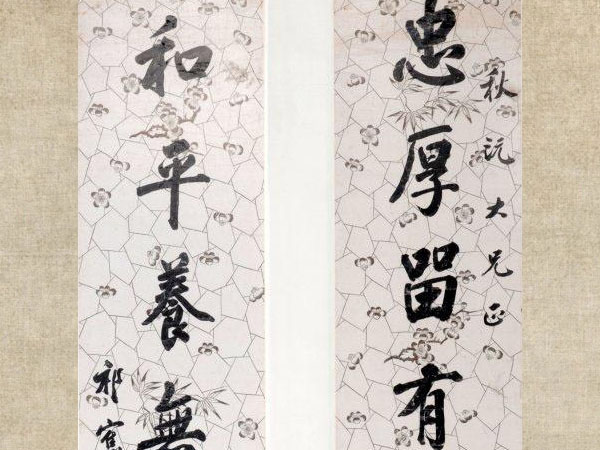 秋沅大兄正
忠厚留有
和平養無
祁